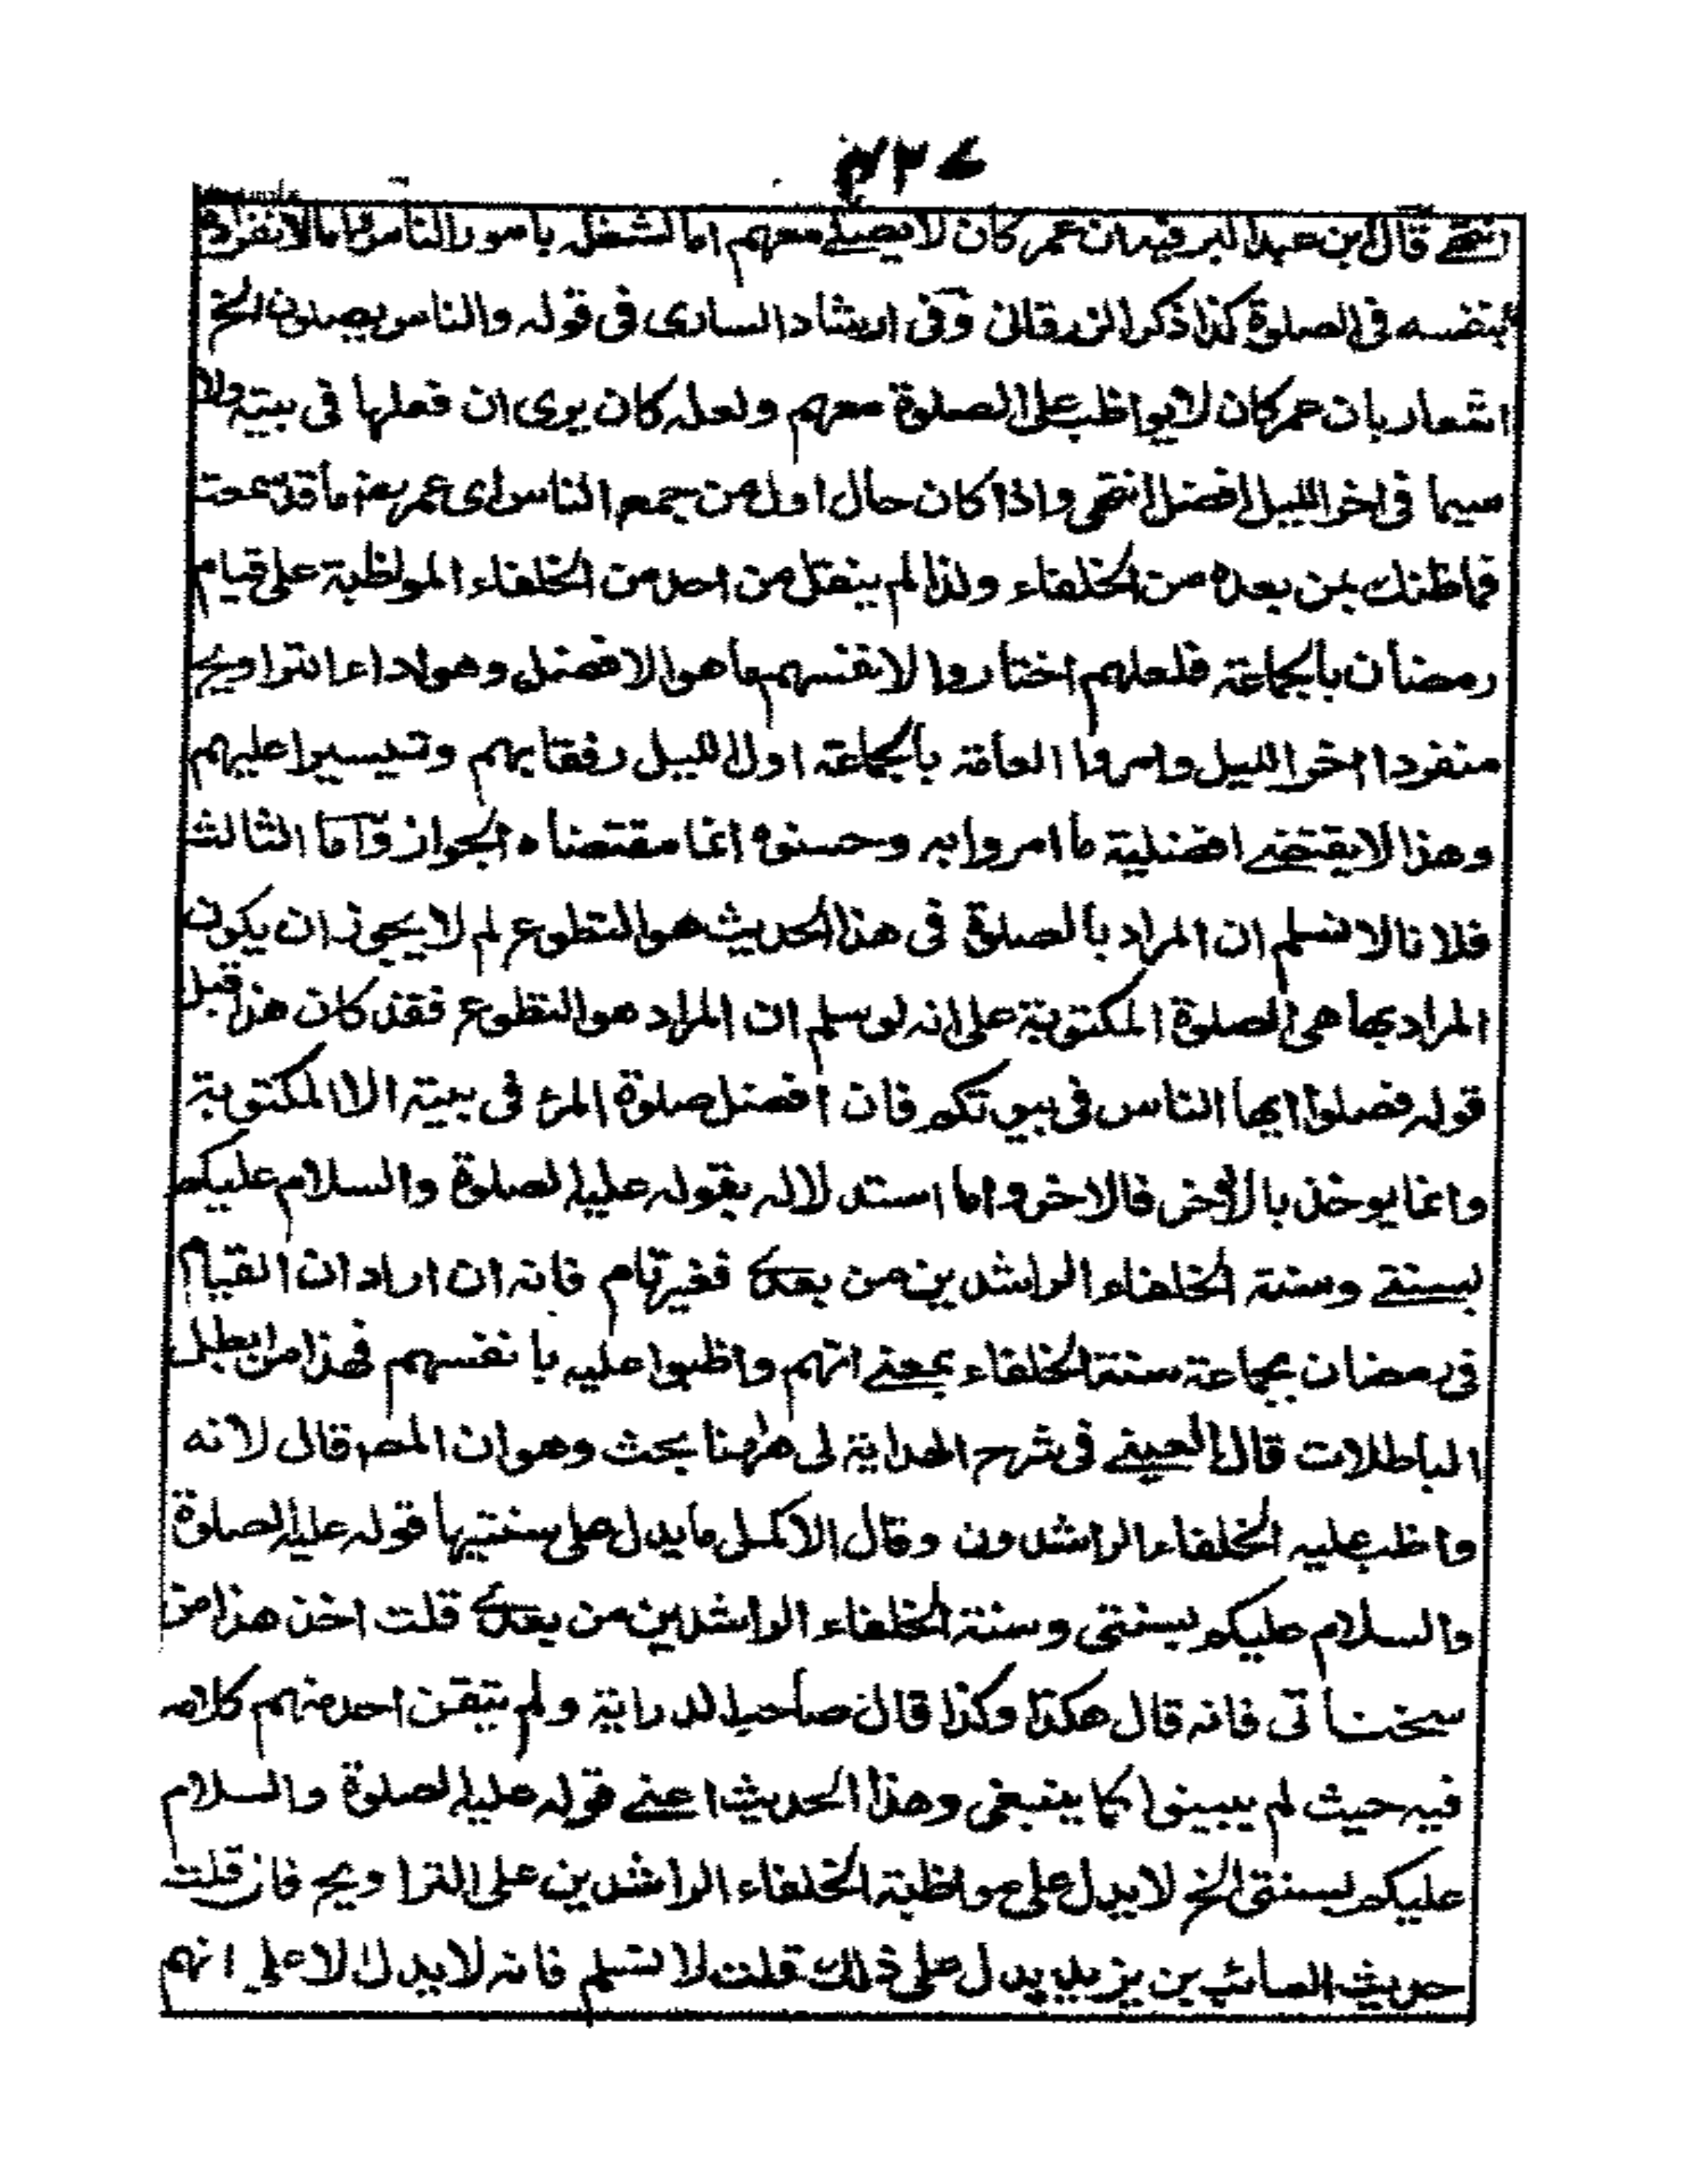 انتهى قال ابن عبد البر فيه ان عمر كان لا يصلي معهم اما لشغله بامور الناس واما لانفراده
بنفسه فى الصلوة كذا ذكر الزرقانى وفى ارشاد السارى فى قوله والناس يصلون الخ
اشعار بان عمر كان لا يواظب على الصلوة معهم ولعله كان يرى ان فعلها فى بيته ولا
سيما فى اخر الليل افضل انتهى واذا كان حال اول من جمع الناس اى عمر رضـ ما قد سمعت
فما ظنك بمن بعده من الخلفاء ولذا لم ينقل من احد من الخلفاء المواظبة على قيام
رمضان بالجماعة فلعلهم اختاروا لانفسهم ما هو الافضل وهو اداء التراويح
منفردا اخر الليل وامروا العامة بالجماعة اول الليل رفقا بهم وتيسيرا عليهم
وهذا لا يقتضى افضلية ما امروا به وحسنوه انما مقتضاه الجواز وآما الثالث
فلانا لا نسلم ان المراد بالصلوة فى هذا الحديث هو التطوع لم لا يجوز ان يكون
المراد بها هى الصلوة المكتوبة على انه لو سلم ان المراد هو التطوع فقد كان هذا قبل
قوله فصلوا ايها الناس فى بيوتكم فان افضل صلوة المرء فى بيته الا المكتوبة
وانما يوخذ بالاخر فالاخر واما استدلاله بقوله عليه الصلوة والسلام عليكم
بسنتى وسنة الخلفاء الراشدين من بعدى فغير تام فانه ان اراد ان القيام
فى رمضان بجماعة سنة الخلفاء بمعنى انهم واظبوا عليه بانفسهم فهذا من ابطل
الباطلات قال العينى فى شرح الهداية لى ههنا بحث وهو ان المصـ قال لانه
واظب عليه الخلفاء الراشدون وقال الاكمل ما يدل على سنتيها قوله عليه الصلوة
والسلام عليكم بسنتى وسنة الخلفاء الراشدين من بعدى قلت اخذ هذا من
سيخناتى فانه قال هكذا وكذا قال صاحب الدراية ولم يتقن احد منهم كلامه
فيه حيث لم يبينوا كما ينبغى وهذا الحديث اعنى قوله عليه الصلوة والسلام
عليكم بسنتى الخ لا يدل على مواظبة الخلفاء الراشدين على التراويح فان قلت
حديث السائب بن يزيد يدل على ذلك قلت لا نسلم فانه لا يدل الا على انهم